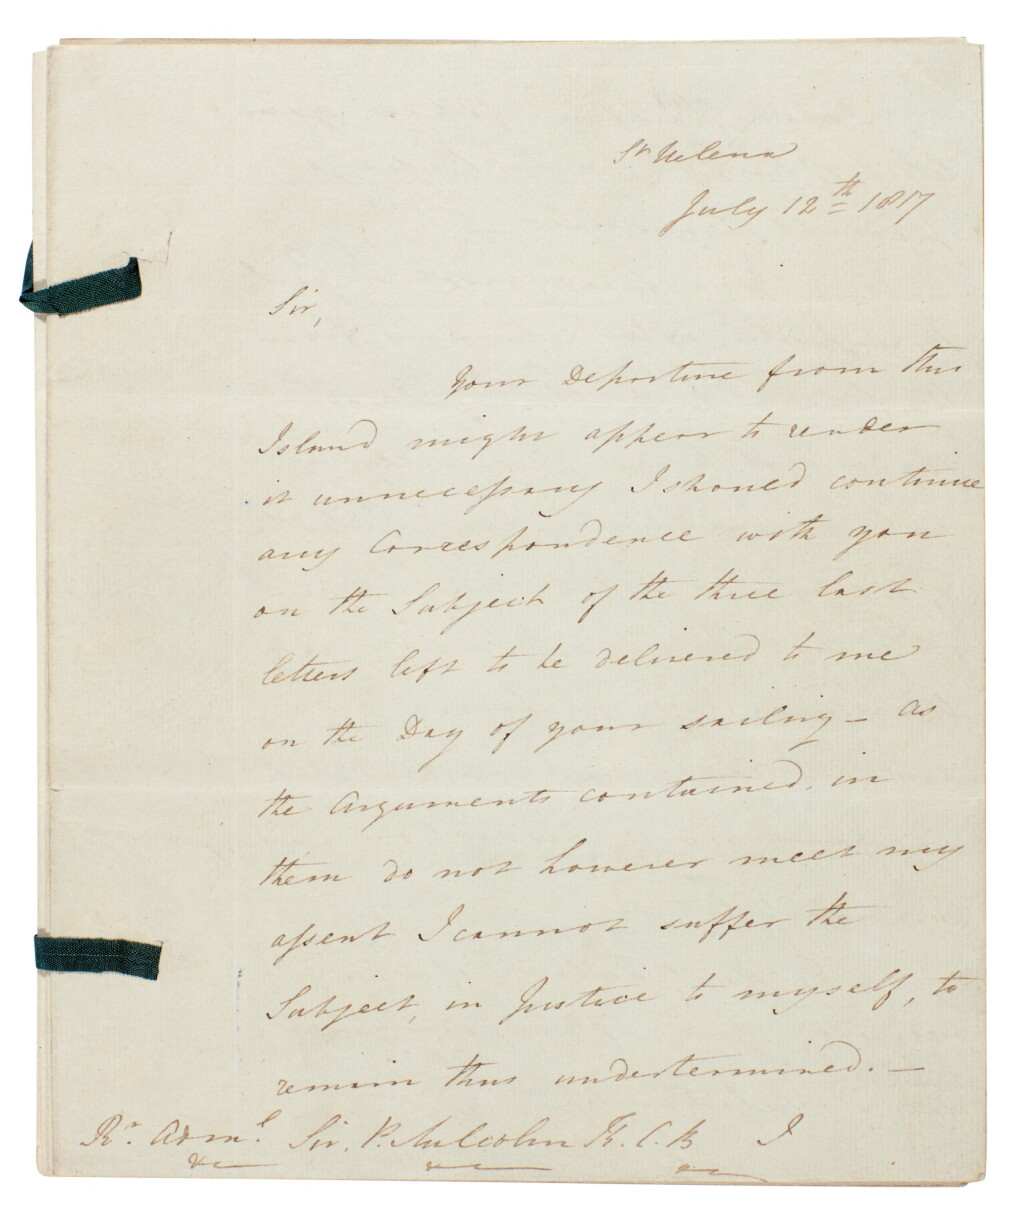 St Helena
July 12th 1817
Sir,
Your Departure from this
Island might appear to render
it unnecessary I should continue
any Correspondence with you
on the Subject of the three last
letters left to be delivered to me
on the Day of your sailing – as
the Arguments contained in
them do not however meet my
assent I cannot suffer the
Subject, in Justice to myself, to
remain thus undetermined. –
Rr. Adml. Sir. P. Malcolm K. C. B I
&c &c &c